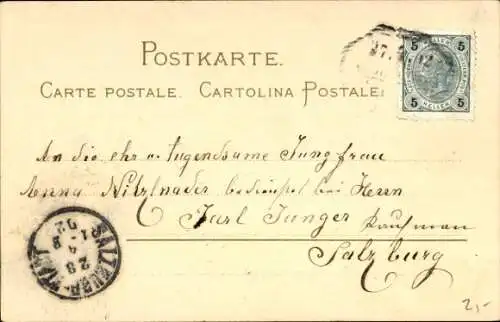 POSTKARTE.
CARTE POSTALE. CARTOLINA POSTALE.
5 5
HELLER
5 5
27. 12
An die ehr u. tugendsame Jungfrau
Anna Nitzlnader bedienstet bei Herrn
Karl Junger Kaufman
Salzburg
SALZBURG-STADT
28
02
2,-